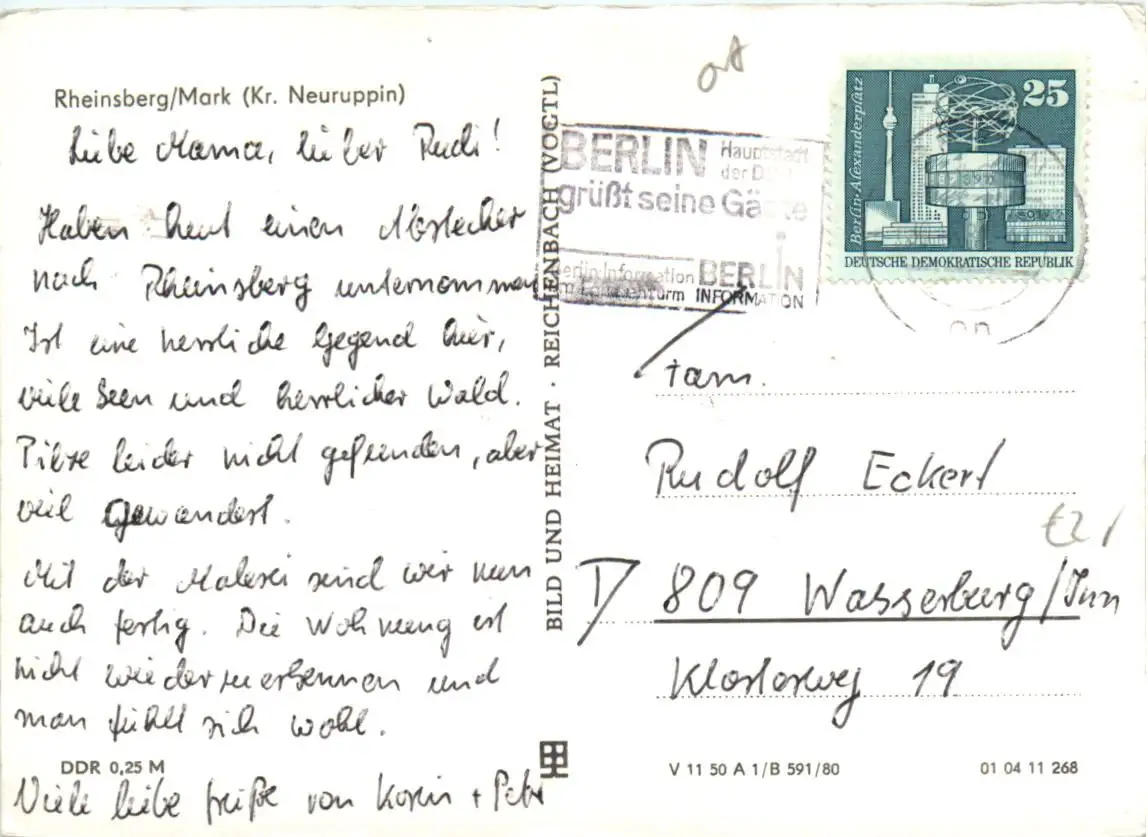 Rheinsberg/Mark (Kr. Neuruppin)
Liebe Mama, lieber Rudi!
Haben heut einen Abstecher
nach Rheinsberg unternommen
Ist eine herrliche Gegend hier,
viele Seen und herrlicher Wald.
Pilze leider nicht gefunden, aber
viel gewandert.
Mit der Malerei sind wir nun
auch fertig. Die Wohnung ist
nicht wiederzuerkennen und
man fühlt sich wohl.
DDR 0,25 M
Viele liebe Grüße von Karin + Peter
BILD UND HEIMAT · REICHENBACH (VOGTL)
BERLIN Hauptstadt
der DDR
grüßt seine Gäste
Berlin-Information BERLIN
im Fernsehturm INFORMATION
Berlin-Alexanderplatz
25
DEUTSCHE DEMOKRATISCHE REPUBLIK
Fam.
Rudolf Eckert
€2
D 809 Wasserburg/Inn
Klosterweg 19
V 11 50 A 1/B 591/80
01 04 11 268